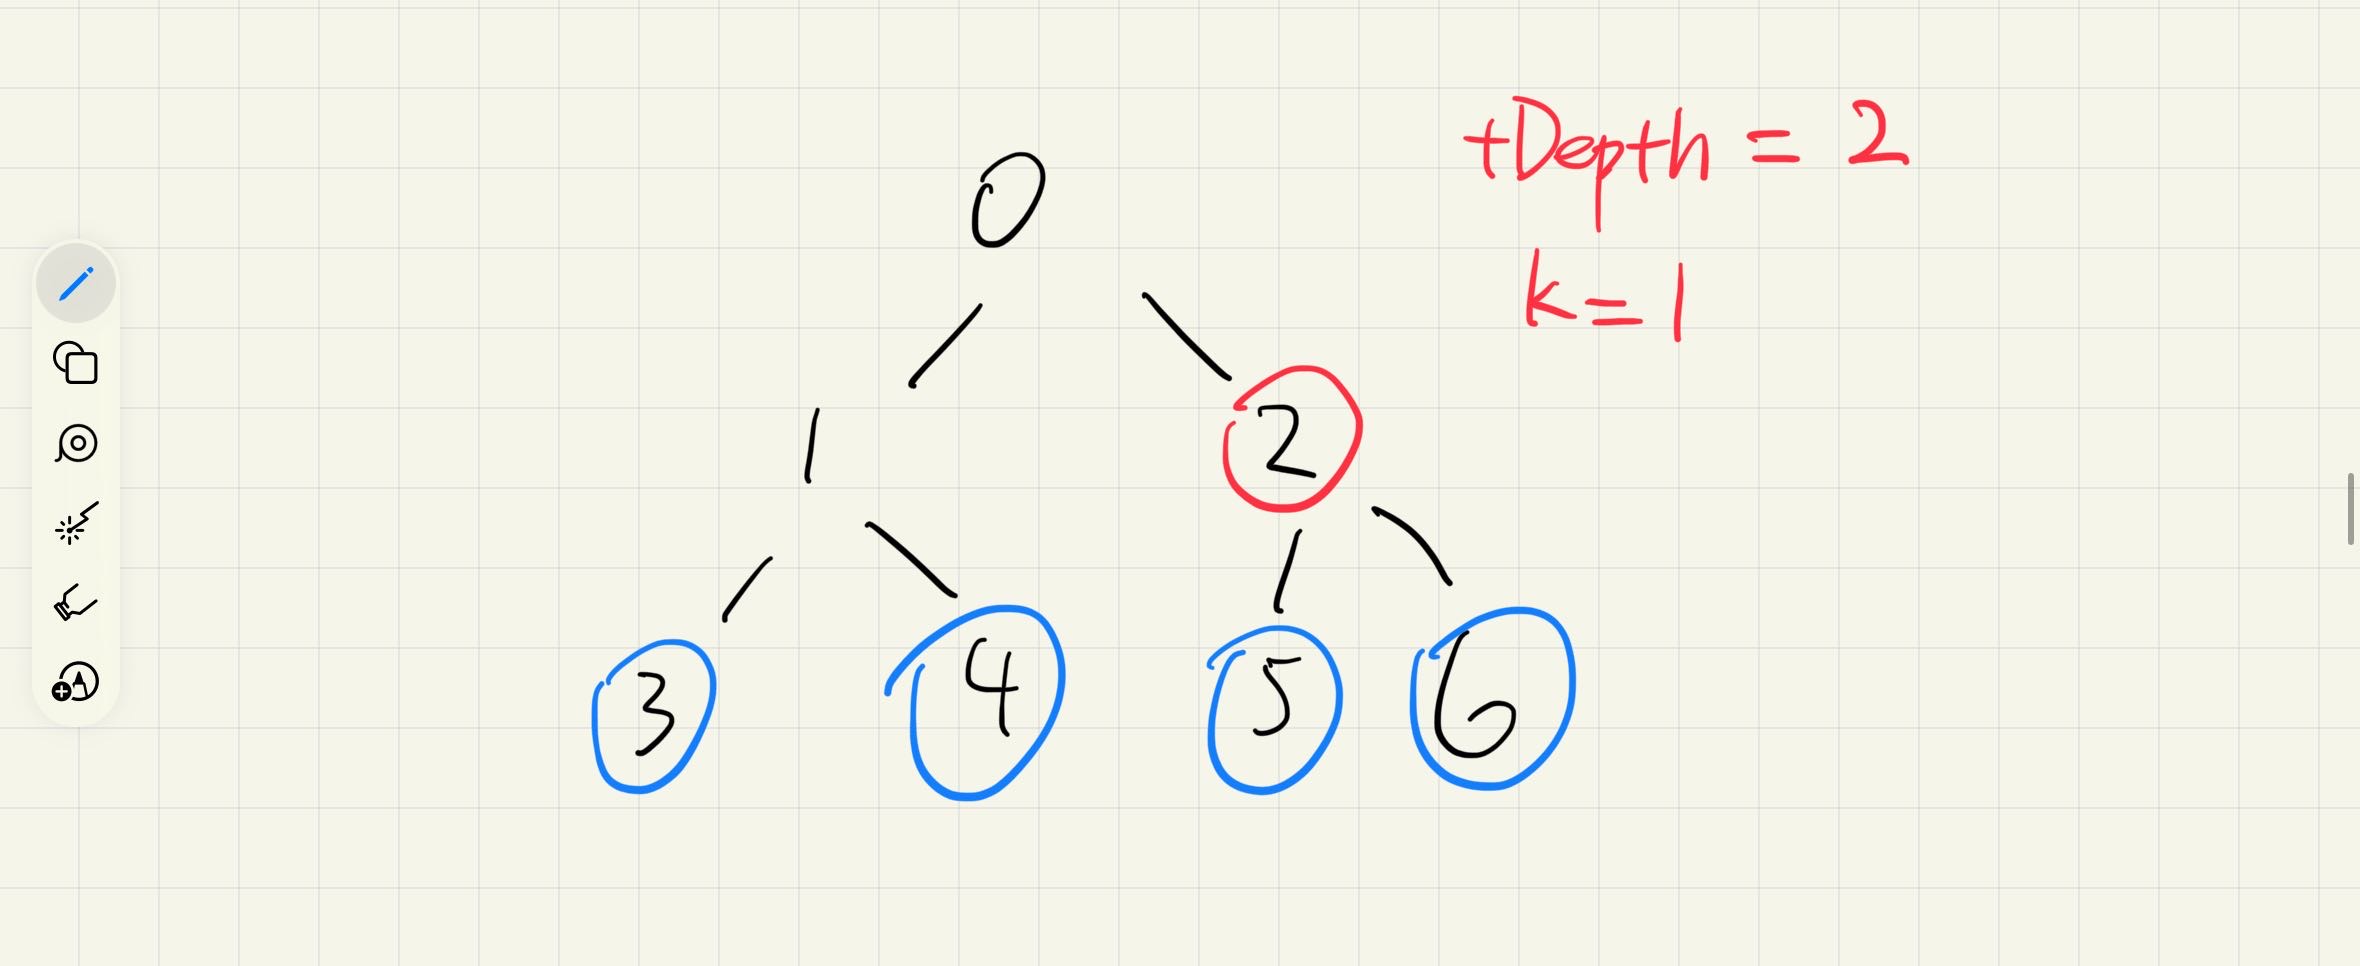 tDepth = 2
0
k=1
1 2
3 4 5 6